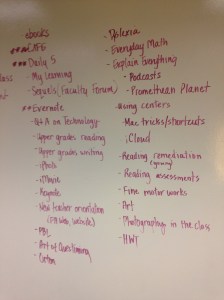 ebooks
CAFE
Daily 5
- My Learning
- (Faculty Forum)
Evernote
- Q+A on Technology
- Upper grades reading
- Upper grades writing
- iPhoto
- iMovie
- Keynote
- New teacher orientation
- PBL
- Art of Questioning
- Dyslexia
- Everyday Math
- Explain Everything
- Podcasts
- Promethean Planet
- Using centers
- Mac tricks/shortcuts
- iCloud
- Reading remediation
- Reading assessments
- Fine motor works
- Art
- Photography in the class
- HWT